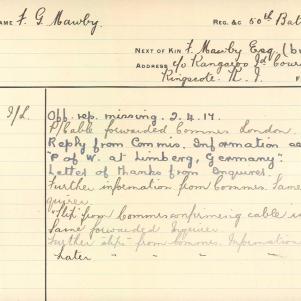 NAME F. G. Mawby REG. &C 50th Bat
NEXT OF KIN F. Mawby Esq. (b
ADDRESS c/o Kangaroo Id Cour
Kingscote. K. I.
I/L. Off. rep. missing. 2.4.17.
P/Cable forwarded Commrs London.
Reply from Commis. Information as
"P of W. at Limberg, Germany".
Letter of thanks from Inquirer.
Further information from Commrs. Same
quirer.
Slip from Commrs confirming cable
Same forwarded Inquirer.
Further slips from Commrs. Information
Later " " " "